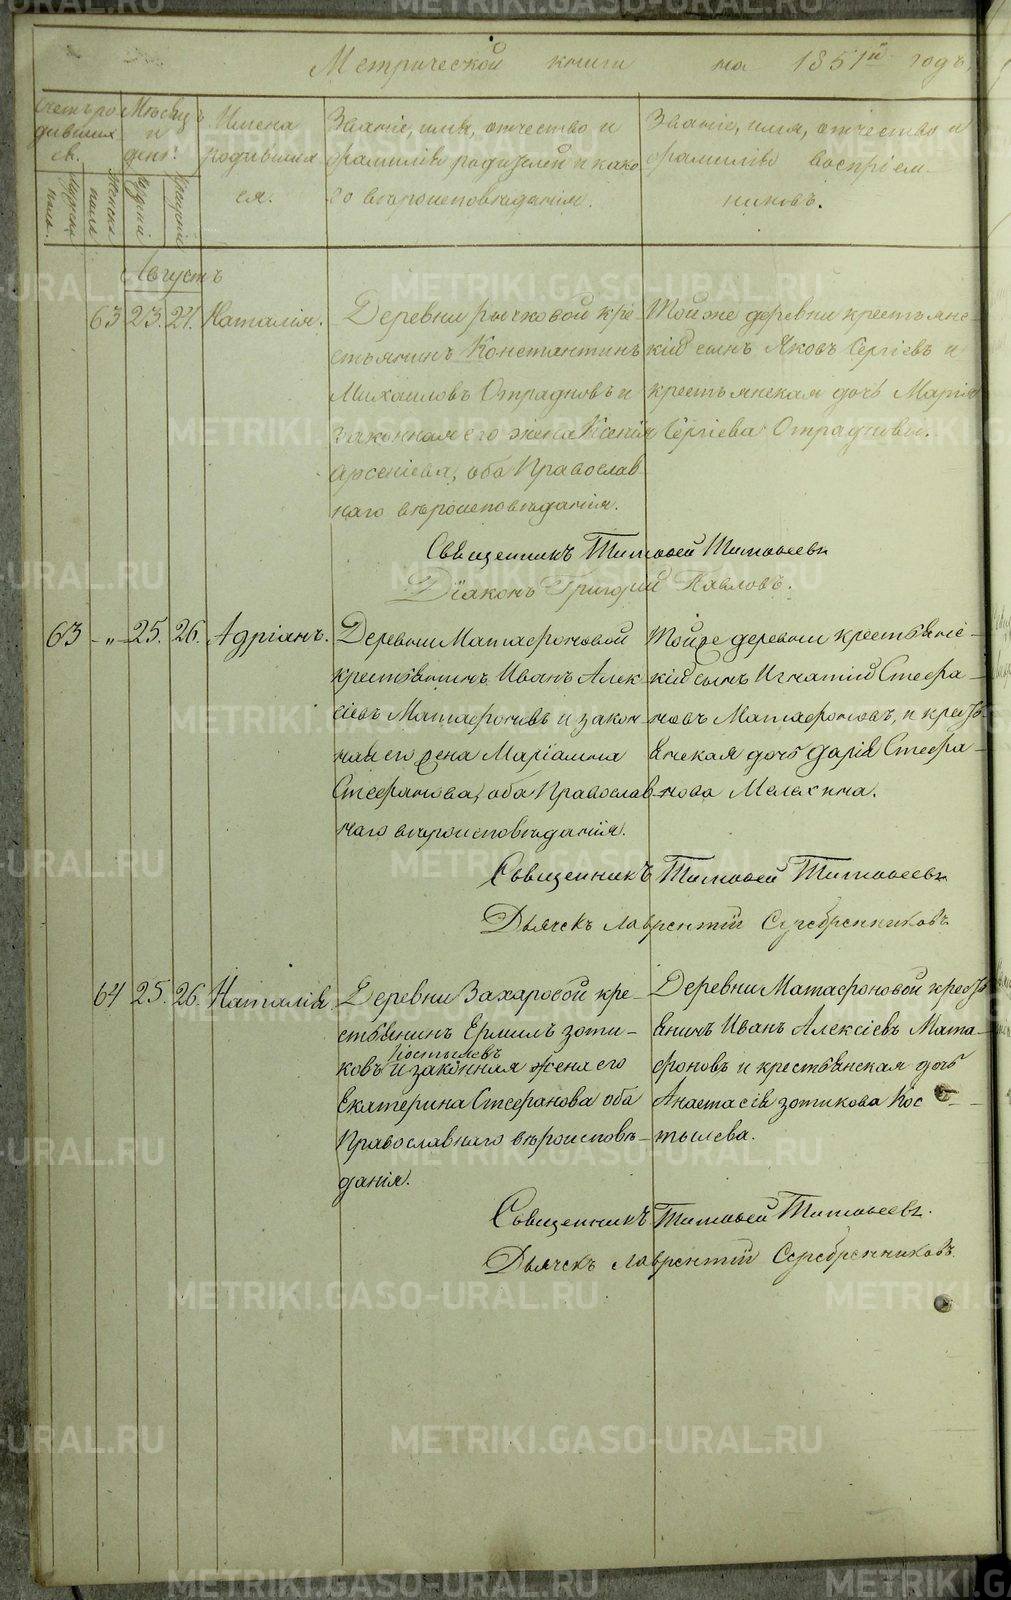 Метрической книги на 1851й годъ,
Счетъ ро
дивших
ся.
Мужеска
пола.
Женска
пола
Мѣсяцъ
и
день.
рожденія
крещенія
Имена
родивших
ся.
Званіе, имя, отчество и
фамилія родителей и како
го вѣроисповѣданія.
Званіе, имя, отчество и
фамилія воспріем
никовъ.
Августъ
63 23. 24. Наталія.
Деревни Рычковой кре
стьянинъ Константинъ
Михаиловъ Отрадновъ и
законная его жена Ксенія
Арсеніева, оба Православ
наго вѣроисповѣданія.
Той же деревни крестьянс
кій сынъ Яковъ Сергіевъ и
крестьянская дочь Марія
Сергіева Отрадновы.
Священникъ Тимоѳей Тимоѳеевъ
Діаконъ Григорій Павловъ.
63 — „ — 25. 26. Адріанъ.
Деревни Матафоновой
крестьянинъ Иванъ Алек
сіевъ Матафоновъ и закон
ная его жена Маріамна
Стефанова, оба Православ
наго вѣроисповѣданія.
Той же деревни крестьянс
кій сынъ Игнатій Стефа
новъ Матафоновъ, и кресть
янская дочь Дарія Стефа
нова Мелехина.
Священникъ Тимоѳей Тимоѳеевъ
Дьячекъ Лаврентій Серебренниковъ
64 25. 26. Наталія
Деревни Захаровой кре
стьянинъ Ермилъ Зоти
Костылевъ
ковъ и законная жена его
Екатерина Стефанова оба
Православнаго вѣроисповѣ
данія.
Деревни Матафоновой кресть
янинъ Иванъ Алексіевъ Мата
фоновъ и крестьянская дочь
Анастасія Зотикова Кос
тылева.
Священникъ Тимоѳей Тимоѳеевъ.
Дьячекъ Лаврентій Серебренниковъ.
METRIKI.GASO-URAL.RU